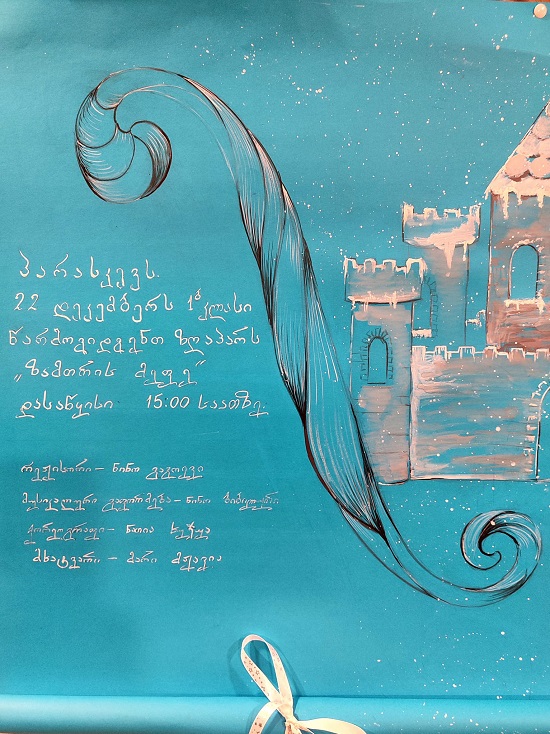 პარასკევს
22 დეკემბერს 1ბ კლასი
წარმოგიდგენთ ზღაპარს
„ზამთრის მეფე“
დასაწყისი 15:00 საათზე.
რეჟისორი - ნინო
მუსიკალური გაფორმება - ნინო
ქორეოგრაფი - ნათია
მხატვარი - მარი მჟავია